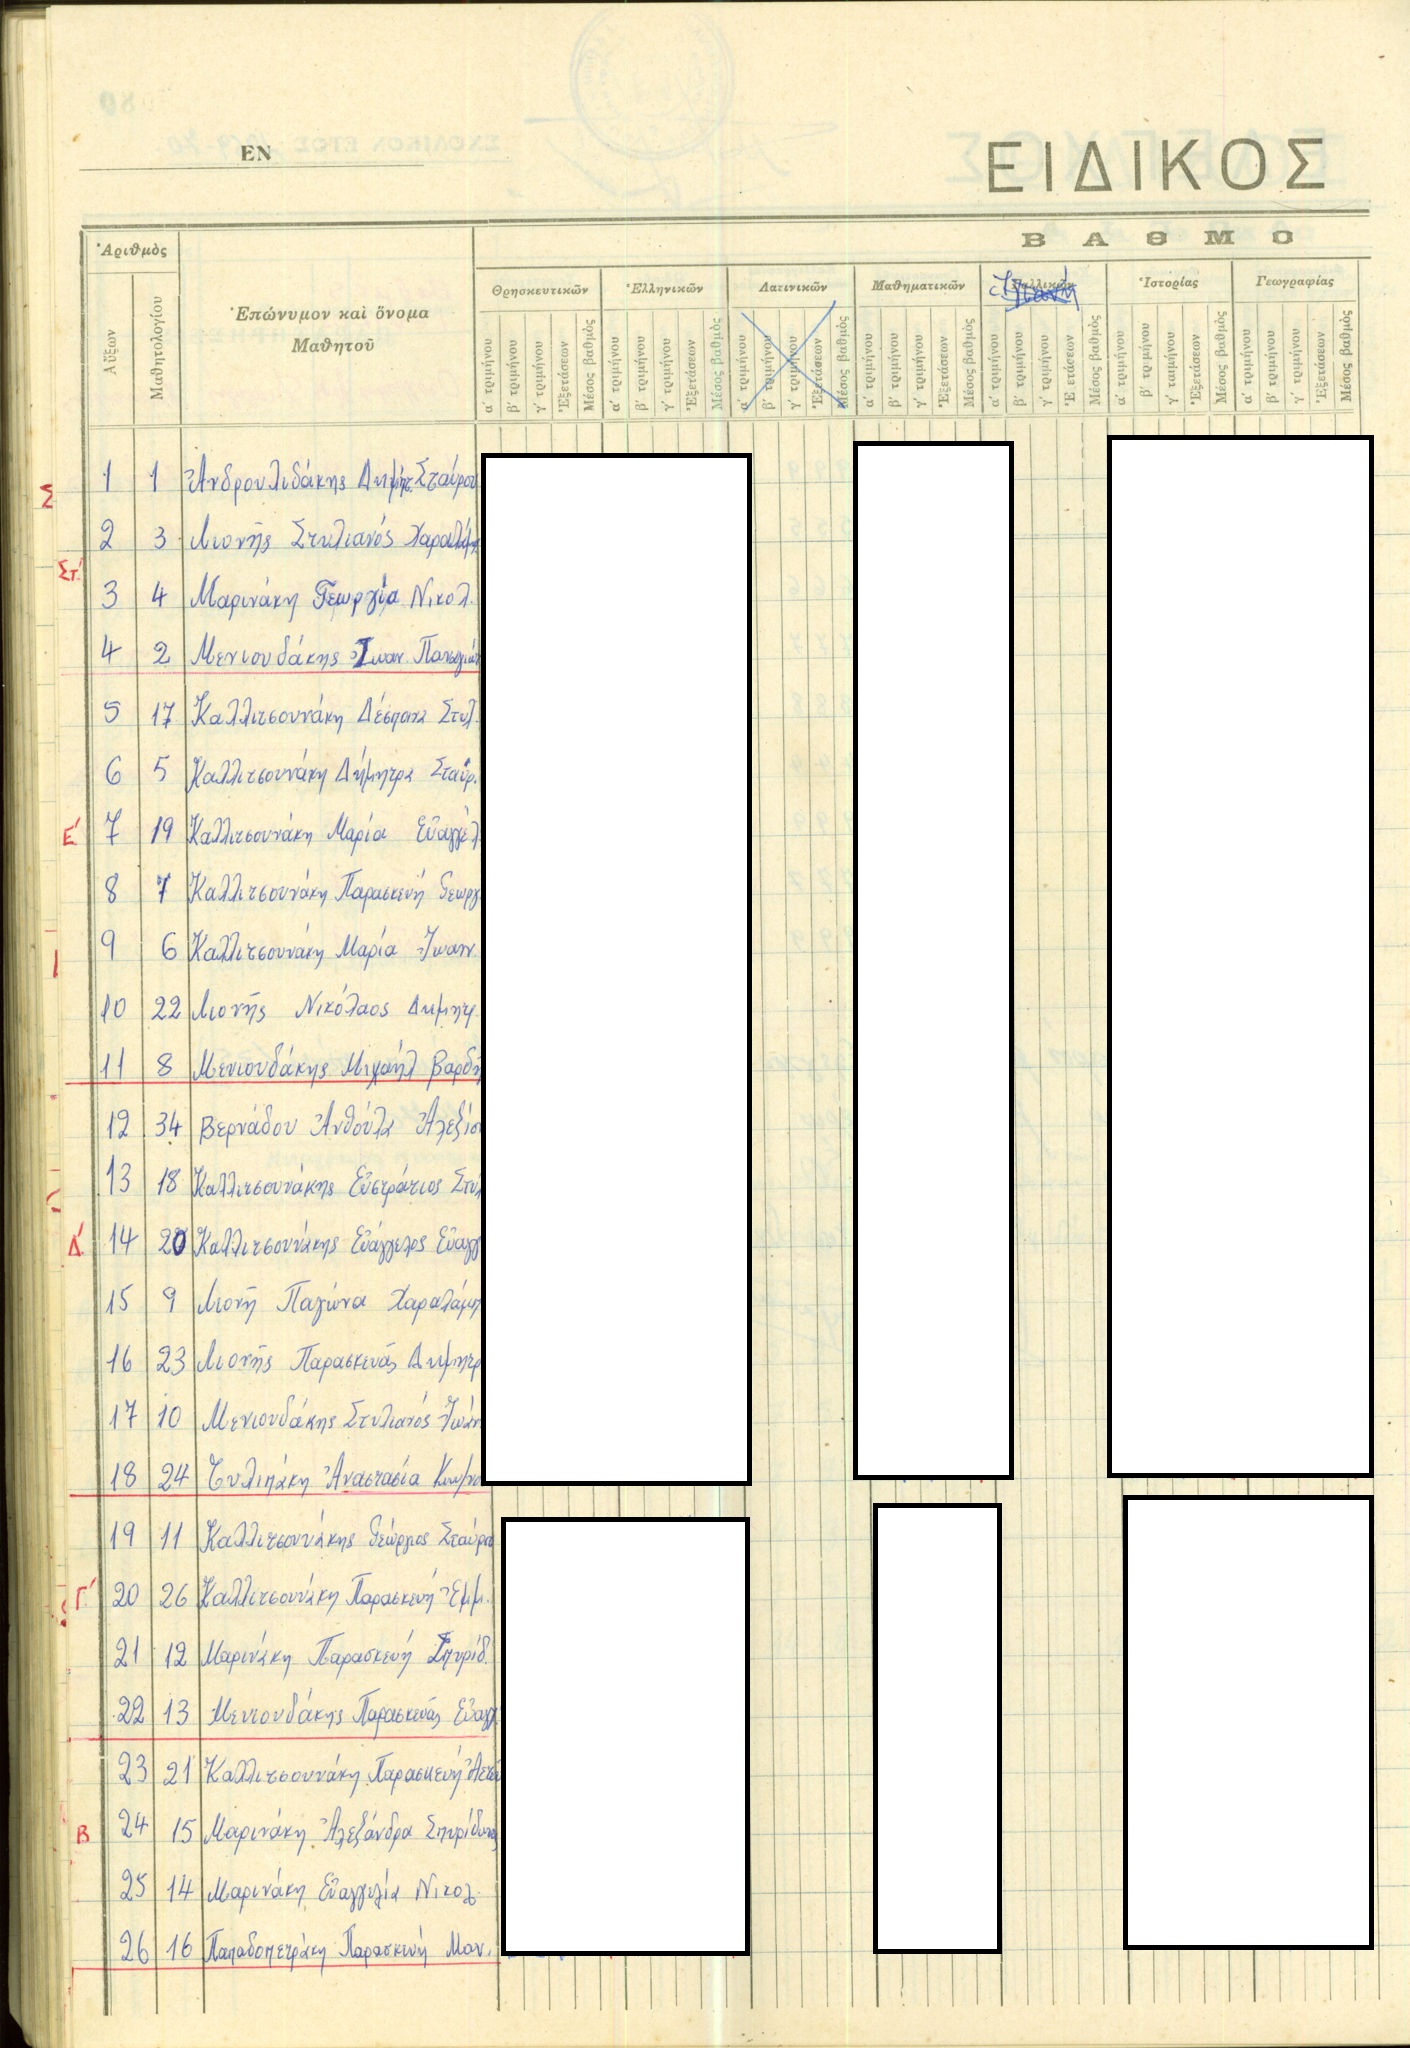 ΕΝ
ΕΙΔΙΚΟΣ
ΒΑΘΜΟ
Ἀριθμὸς
Αὔξων
Μαθητολογίου
Ἐπώνυμον καὶ ὄνομα
Μαθητοῦ
Θρησκευτικῶν Ἑλληνικῶν Λατινικῶν Μαθηματικῶν Γαλλικῶν Ἱστορίας Γεωγραφίας
α' τριμήνου β' τριμήνου γ' τριμήνου Ἐξετάσεων Μέσος βαθμὸς α' τριμήνου β' τριμήνου γ' τριμήνου Ἐξετάσεων Μέσος βαθμὸς α' τριμήνου β' τριμήνου γ' τριμήνου Ἐξετάσεων Μέσος βαθμὸς α' τριμήνου β' τριμήνου γ' τριμήνου Ἐξετάσεων Μέσος βαθμὸς α' τριμήνου β' τριμήνου γ' τριμήνου Ἐ ετάσεων Μέσος βαθμὸς α' τριμήνου β' τριμήνου γ' τριμήνου Ἐξετάσεων Μέσος βαθμὸς α' τριμήνου β' τριμήνου γ' τριμήνου Ἐξετάσεων Μέσος βαθμὸς
1 1 Ἀνδρουλιδάκης Δημήτ. Σταύρου
Σ
2 3 Λιονῆς Στυλιανός Χαραλάμπ
Στ'
3 4 Μαρινάκη Γεωργία Νικολ.
4 2 Μενιουδάκης Ἰωαν. Παναγιώτ
5 17 Καλλιτσουνάκη Δέσποινα Στυλ.
6 5 Καλλιτσουνάκη Δήμητρα Σταύρ.
Ε' 7 19 Καλλιτσουνάκη Μαρία Εὐαγγέλ
8 7 Καλλιτσουνάκη Παρασκευή Γεωργ
9 6 Καλλιτσουνάκη Μαρία Ἰωανν.
10 22 Λιονῆς Νικόλαος Δημητρ.
11 8 Μενιουδάκης Μιχαήλ Βαρδῆ
12 34 Βερνάδου Ἀνθούλα Ἀλεξίου
13 18 Καλλιτσουνάκης Εὐστράτιος Στυλ
Δ' 14 20 Καλλιτσουνάκης Εὐάγγελος Εὐαγγ
15 9 Λιονῆ Παγώνα Χαραλάμπ
16 23 Λιονῆς Παρασκευᾶς Δημητρ
17 10 Μενιουδάκης Στυλιανός Ἰωάν
18 24 Τυλιπάκη Ἀναστασία
19 11 Καλλιτσουνάκης Γεώργιος Σταύρου
Γ' 20 26 Καλλιτσουνάκη Παρασκευή Ἐμμ.
21 12 Μαρινάκη Παρασκευή Σπυρίδ.
22 13 Μενιουδάκης Παρασκευᾶς Εὐαγγ
23 21 Καλλιτσουνάκη Παρασκευή
Β 24 15 Μαρινάκη Ἀλεξάνδρα Σπυρίδωνος
25 14 Μαρινάκη Εὐαγγελία Νικολ.
26 16 Παπαδοπετράκη Παρασκευή Μαν.